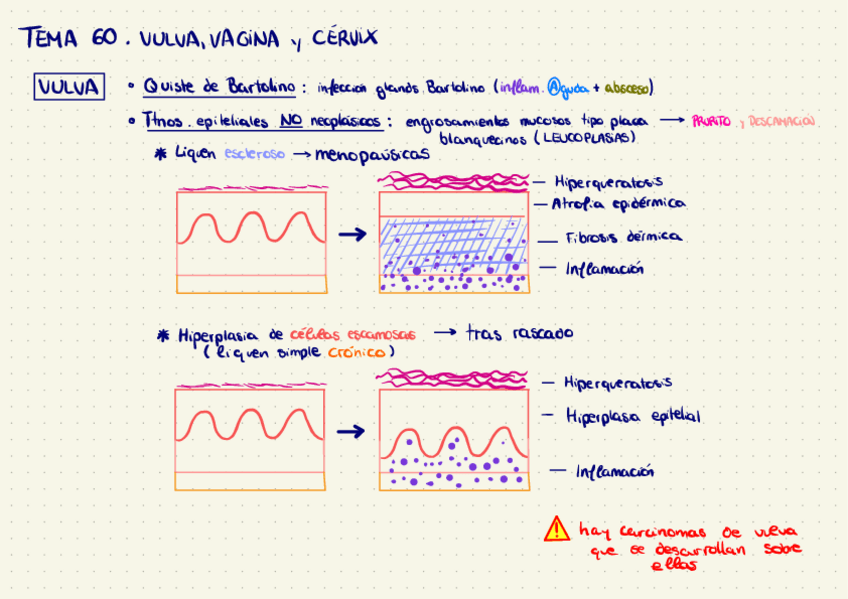 TEMA 60. VULVA, VAGINA y CÉRVIX
VULVA
• Quiste de Bartolino: infección glands. Bartolino (inflam. Aguda + absceso)
• Ttnos. epiteliales NO neoplásicos: engrosamientos mucosos tipo placa → PRURITO y DESCAMACIÓN
blanquecinos (LEUCOPLASIAS)
* Liquen escleroso → menopaúsicas
— Hiperqueratosis
— Atrofia epidérmica
— Fibrosis dérmica
— Inflamación
* Hiperplasia de células escamosas → tras rascado
(liquen simple crónico)
— Hiperqueratosis
— Hiperplasia epitelial
— Inflamación
hay carcinomas de vulva
que se desarrollan sobre
ellas